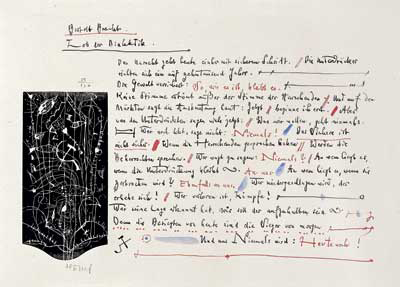 Bertolt Brecht
Lob der Dialektik.
Das Unrecht geht heute einher mit sicherem Schritt. / Die Unterdrücker
richten sich ein auf zehntausend Jahre.
Die Gewalt versichert: So, wie es ist, bleibt es.
Keine Stimme ertönt außer der Stimme der Herrschenden / Und auf den
Märkten sagt die Ausbeutung laut: Jetzt / beginne ich erst. / Aber
von den Unterdrückten sagen viele jetzt: / Was wir wollen, geht niemals.
Wer noch lebt, sage nicht: Niemals! Das Sichere ist
nicht sicher. / Wenn die Herrschenden gesprochen haben / Werden die
Beherrschten sprechen. / Wer wagt zu sagen: Niemals? / An wem liegt es,
wenn die Unterdrückung bleibt? An uns. An wem liegt es, wenn sie
zerbrochen wird? Ebenfalls an uns. Wer niedergeschlagen wird, der
erhebe sich! / Wer verloren ist, kämpfe!
Wer seine Lage erkannt hat, wie soll der aufzuhalten sein
Denn die Besiegten von heute sind die Sieger von morgen
Und aus Niemals wird: Heute noch!